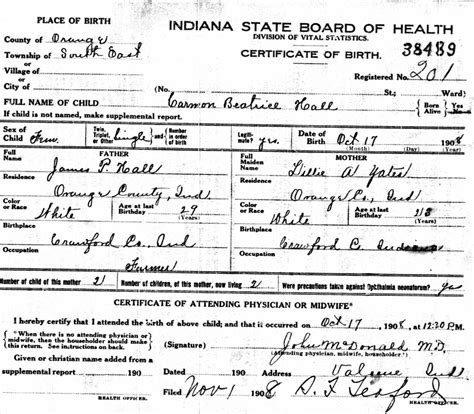 PLACE OF BIRTH
INDIANA STATE BOARD OF HEALTH
DIVISION OF VITAL STATISTICS.
CERTIFICATE OF BIRTH.
38489
County of Orange
Township of South East
Village of
Registered No. 201
City of
St.; Ward)
FULL NAME OF CHILD Carmon Beatrice Hall
Born Alive Yes
If child is not named, make supplemental report.
Sex of Child Fem. Twin, Triplet, or Other Single and Number in order of birth Legitimate? yes. Date of Birth Oct 17 1908
(Month) (Day) (Year)
FATHER MOTHER
Full Name James P. Hall Full Maiden Name Dillie A Yates
Orange County, Ind Orange Co, Ind
Color or Race White Age at last Birthday 29 (Years) Color or Race White Age at last Birthday (Years)
Birthplace Crawford Co, Ind Birthplace Crawford C. Indiana
Occupation Farmer Occupation
Number of child of this mother 2 Number of children, of this mother, now living 2 Were precautions taken against Ophthalmia neonatorum? yes
CERTIFICATE OF ATTENDING PHYSICIAN OR MIDWIFE*
I hereby certify that I attended the birth of above child; and that it occurred on Oct 17, 1908, at 12:30 P.M.
*When there is no attending physician or midwife, then the householder should make this return. See instructions on back.
(Signature) John McDonald M.D.
(Attending physician, midwife, householder.*)
Given or christian name added from a supplemental report 190
Address Valeene Ind.
Filed Nov 1 1908
HEALTH OFFICER. HEALTH OFFICER.